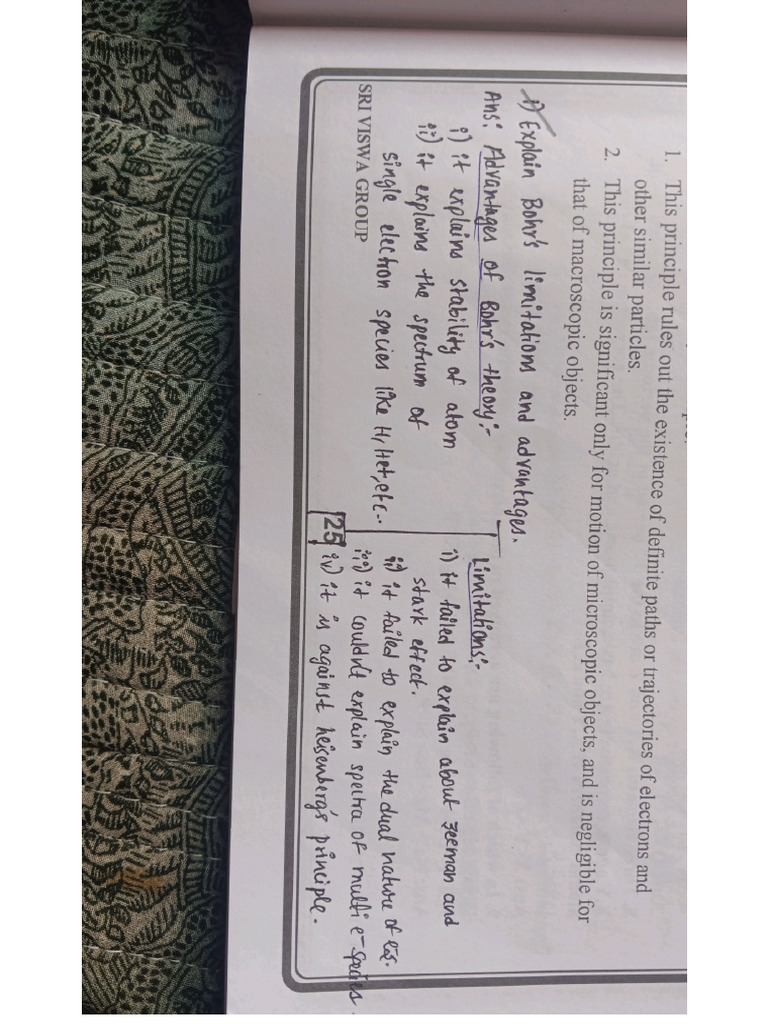 1. This principle rules out the existence of definite paths or trajectories of electrons and
other similar particles.
2. This principle is significant only for motion of microscopic objects, and is negligible for
that of macroscopic objects.
1) Explain Bohr's limitations and advantages.
Ans: Advantages of Bohr's theory:-
i) it explains stability of atom
ii) it explains the spectrum of
single electron species like H, He+, etc..
Limitations:-
i) it failed to explain about zeeman and
stark effect.
ii) it failed to explain the dual nature of e⁻s.
iii) it couldn't explain spectra of multi e⁻ species.
iv) it is against heisenberg's principle.
SRI VISWA GROUP
25